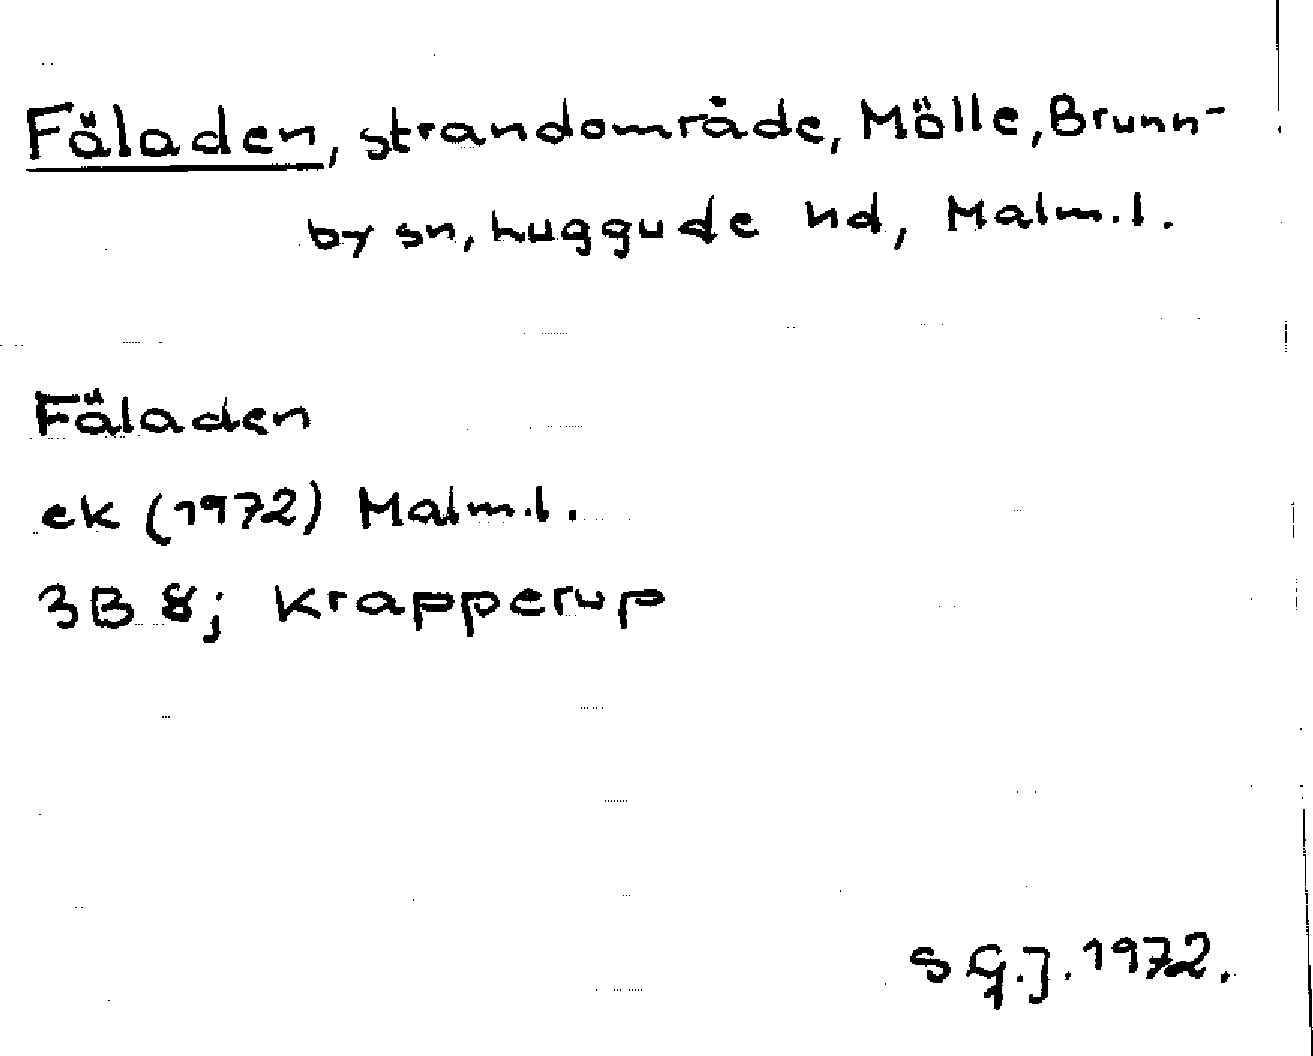 Fäladen, strandområde, Mölle, Brunn-
by sn, Luggude hd, Malm.l.
Fäladen
ek (1972) Malm.l.
3B 8j Krapperup
SGJ. 1972.